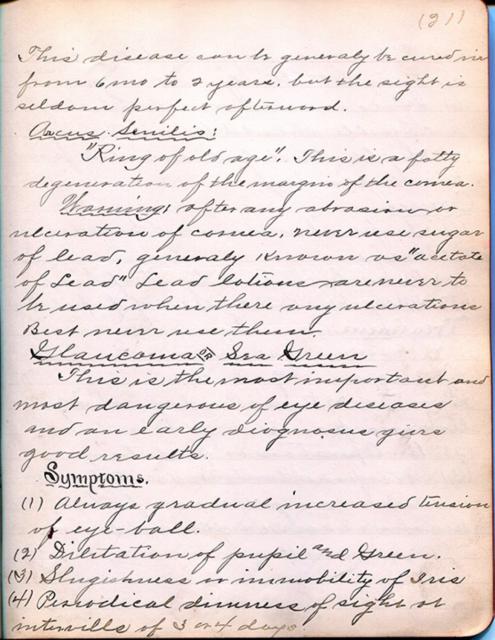 (21)
This disease can be generaly be cured in
from 6 mo to 2 years, but the sight is
seldom perfect afterward.
Arcus Senilis:
"Ring of old age". This is a fatty
degeneration of the margin of the cornea.
Warning: after any abrasion or
ulceration of cornea, never use sugar
of lead, generaly known as "acetate
of Lead" Lead lotions are never to
be used when there any ulcerations
Best never use them.
Glaucoma or Sea Green
This is the most important and
most dangerous of eye diseases
and an early diognosis gives
good results.
Symptoms.
(1) Always gradual increased tension
of eye-ball.
(2) Dilitation of pupil and Green.
(3) Slugishness or immobility of Iris
(4) Periodical dimness of sight at
intervills of 3 or 4 days.